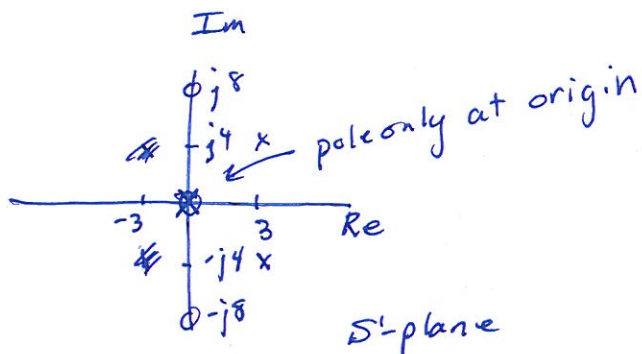 Im
j8
j4 x
pole only at origin
-3
3
Re
-j4 x
-j8
S-plane